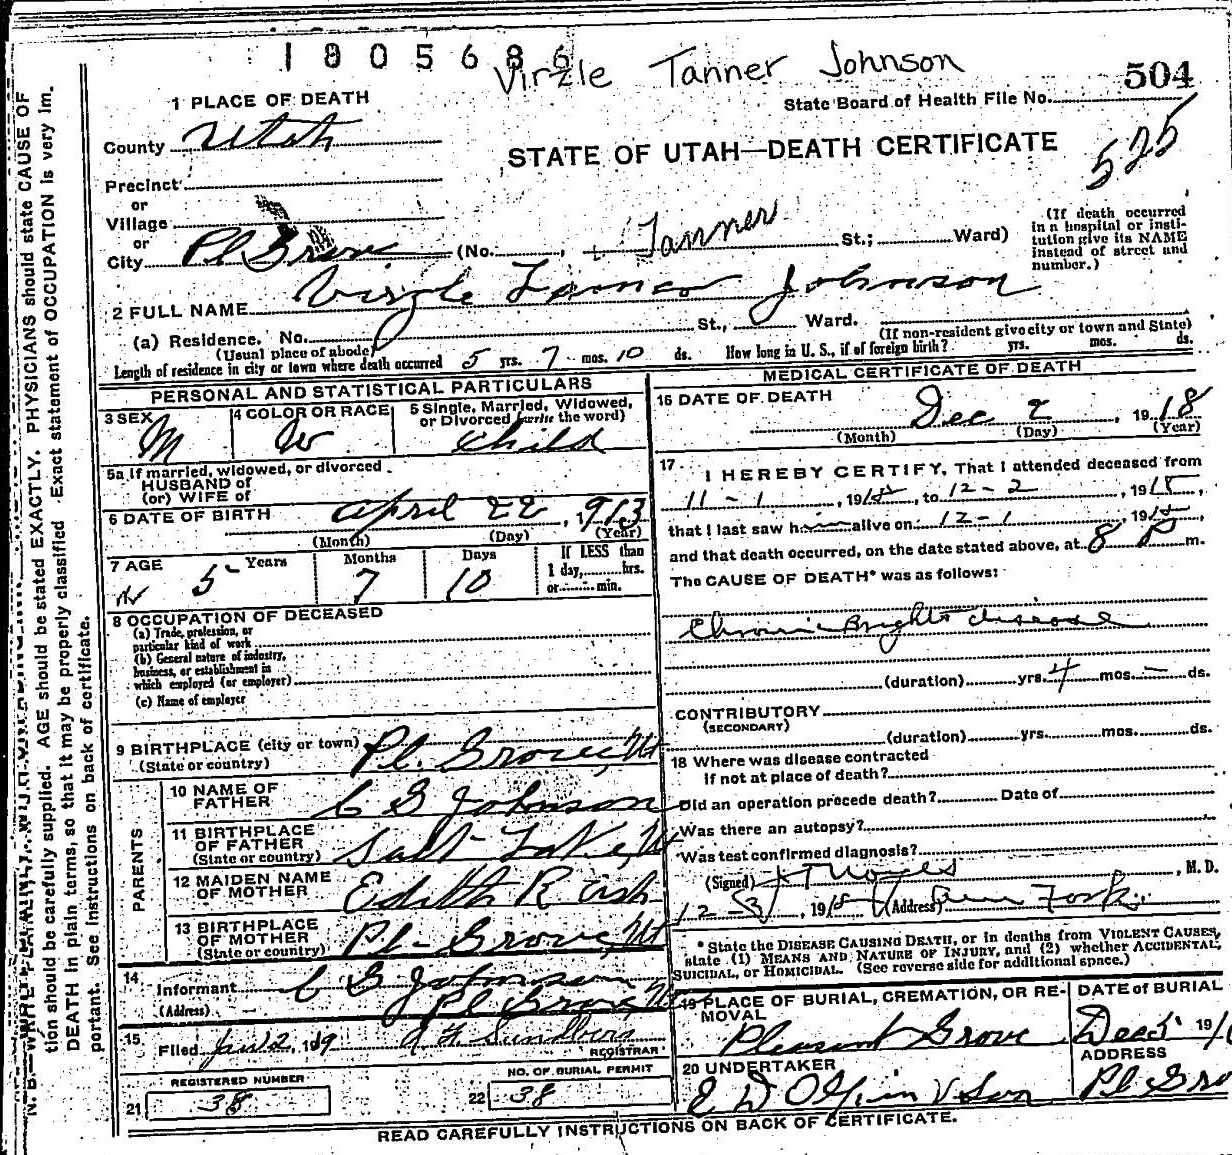 1005686
Virzle Tanner Johnson
504
State Board of Health File No.
575
STATE OF UTAH—DEATH CERTIFICATE
1 PLACE OF DEATH
County Utah
Precinct
or
Village
or
City Pl Grove (No. Tanner St.; Ward)
(If death occurred in a hospital or insti-
tution give its NAME
instead of street and
number.)
2 FULL NAME Virgle Tanner Johnson
(a) Residence. No. St., Ward.
(Usual place of abode) (If non-resident give city or town and State)
Length of residence in city or town where death occurred 5 yrs. 7 mos. 10 ds. How long in U. S., if of foreign birth? yrs. mos. ds.
PERSONAL AND STATISTICAL PARTICULARS
3 SEX M
4 COLOR OR RACE W
5 Single, Married, Widowed,
or Divorced (write the word)
Child
5a If married, widowed, or divorced
HUSBAND of
(or) WIFE of
6 DATE OF BIRTH April 22, 1913
(Month) (Day) (Year)
7 AGE 5 Years 7 Months 10 Days
If LESS than
1 day, hrs.
or min.
8 OCCUPATION OF DECEASED
(a) Trade, profession, or
particular kind of work
(b) General nature of industry,
business, or establishment in
which employed (or employer)
(c) Name of employer
9 BIRTHPLACE (city or town) Pl. Grove, Ut
(State or country)
PARENTS
10 NAME OF
FATHER C G Johnson
11 BIRTHPLACE
OF FATHER Salt Lake, Ut
(State or country)
12 MAIDEN NAME
OF MOTHER Edith R
13 BIRTHPLACE
OF MOTHER Pl. Grove, Ut
(State or country)
14 Informant C G Johnson
(Address) Pl Grove, Ut
15 Filed Jan 2, 1919
REGISTRAR
REGISTERED NUMBER
21 38
NO. OF BURIAL PERMIT
22 38
MEDICAL CERTIFICATE OF DEATH
16 DATE OF DEATH Dec 2, 1918
(Month) (Day) (Year)
17 I HEREBY CERTIFY, That I attended deceased from
11-1, 1918, to 12-2, 1918,
that I last saw him alive on 12-1, 1918,
and that death occurred, on the date stated above, at 8 P m.
The CAUSE OF DEATH* was as follows:
Chronic Brights disease
(duration) yrs. 4 mos. - ds.
CONTRIBUTORY
(SECONDARY)
(duration) yrs. mos. ds.
18 Where was disease contracted
if not at place of death?
Did an operation precede death? Date of
Was there an autopsy?
Was test confirmed diagnosis?
(Signed) Noyes, M. D.
12-3, 1918 (Address) Fork
*State the DISEASE CAUSING DEATH, or in deaths from VIOLENT CAUSES,
state (1) MEANS AND NATURE OF INJURY, and (2) whether ACCIDENTAL,
SUICIDAL, or HOMICIDAL. (See reverse side for additional space.)
19 PLACE OF BURIAL, CREMATION, OR RE-
MOVAL
Pleasant Grove
DATE of BURIAL
Dec 5 191
20 UNDERTAKER
E D Olpin & Son
ADDRESS
Pl Gro
READ CAREFULLY INSTRUCTIONS ON BACK OF CERTIFICATE.
N. B.—WRITE PLAINLY,
tion should be carefully supplied. AGE should be stated EXACTLY. PHYSICIANS should state CAUSE OF
DEATH in plain terms, so that it may be properly classified. Exact statement of OCCUPATION is very im-
portant. See instructions on back of certificate.